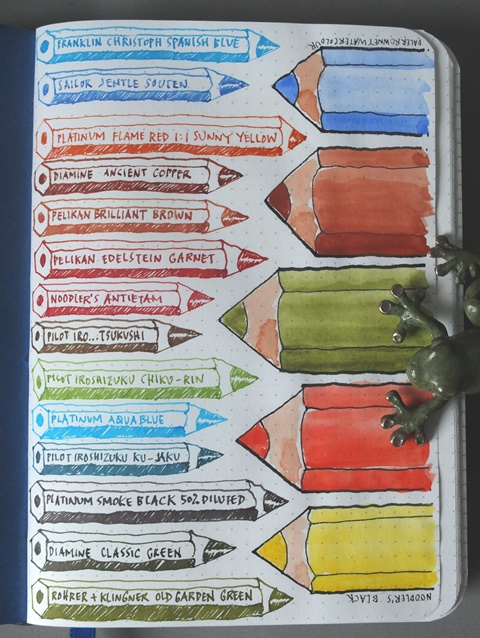 FRANKLIN CHRISTOPH SPANISH BLUE
SAILOR JENTLE SOUTEN
PLATINUM FLAME RED 1:1 SUNNY YELLOW
DIAMINE ANCIENT COPPER
PELIKAN BRILLIANT BROWN
PELIKAN EDELSTEIN GARNET
NOODLER'S ANTIETAM
PILOT IRO...TSUKUSHI
PILOT IROSHIZUKU CHIKU-RIN
PLATINUM AQUABLUE
PILOT IROSHIZUKU KU-JAKU
PLATINUM SMOKE BLACK 50% DILUTED
DIAMINE CLASSIC GREEN
ROHRER + KLINGNER OLD GARDEN GREEN
WATERCOLOUR
NOODLER'S BLACK